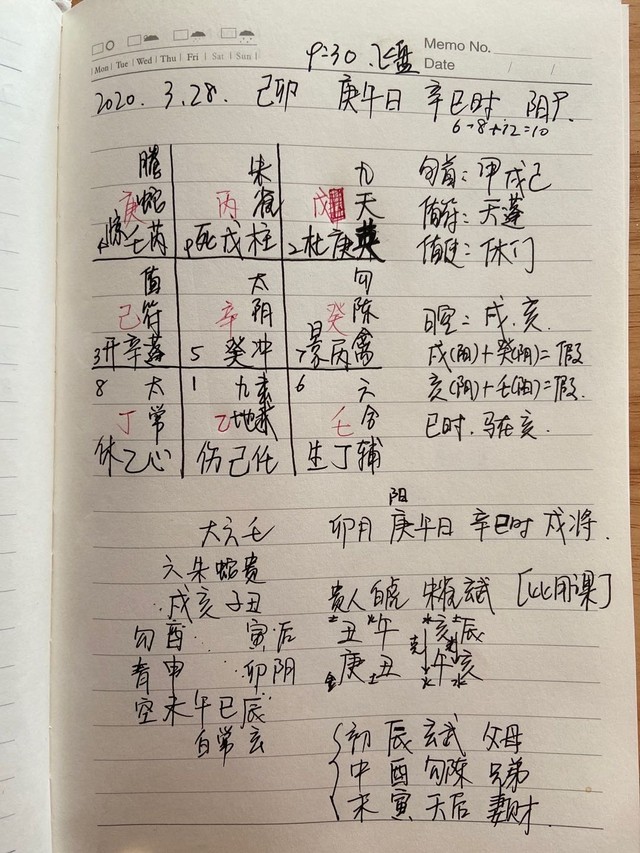 Mon Tue Wed Thu Fri Sat Sun
9:30 飞盘
Memo No.
Date / /
2020. 3.28. 己卯 庚午日 辛巳时 阳9.
6-8+12=10
螣 朱 九
庚 蛇 丙 雀 戊 天
4 惊 壬 芮 9 死 戊 柱 2 杜 庚 英
值 太 勾
己 符 辛 阴 癸 陈
3 开 辛 蓬 5 癸 冲 7 景 丙 禽
8 太 1 九 6 六
丁 常 乙 地 壬 合
休 乙 心 伤 己 任 生 丁 辅
旬首: 甲戌己
值符: 天蓬
值使: 休门
旬空: 戌.亥.
戌(阳)+癸(阴)=假
亥(阴)+壬(阳)=假.
巳时.马在亥.
大六壬
六朱蛇贵
戌亥子丑
勾酉 寅后
青申 卯阴
空未午巳辰
白常玄
阳
卯月 庚午日 辛巳时 戌将.
贵人 白虎 朱雀 玄武 [比用课]
土丑 火午 水亥 土辰
克
金庚 土丑 火午 水亥
初 辰 玄武 父母
中 酉 勾陈 兄弟
末 寅 天后 妻财.